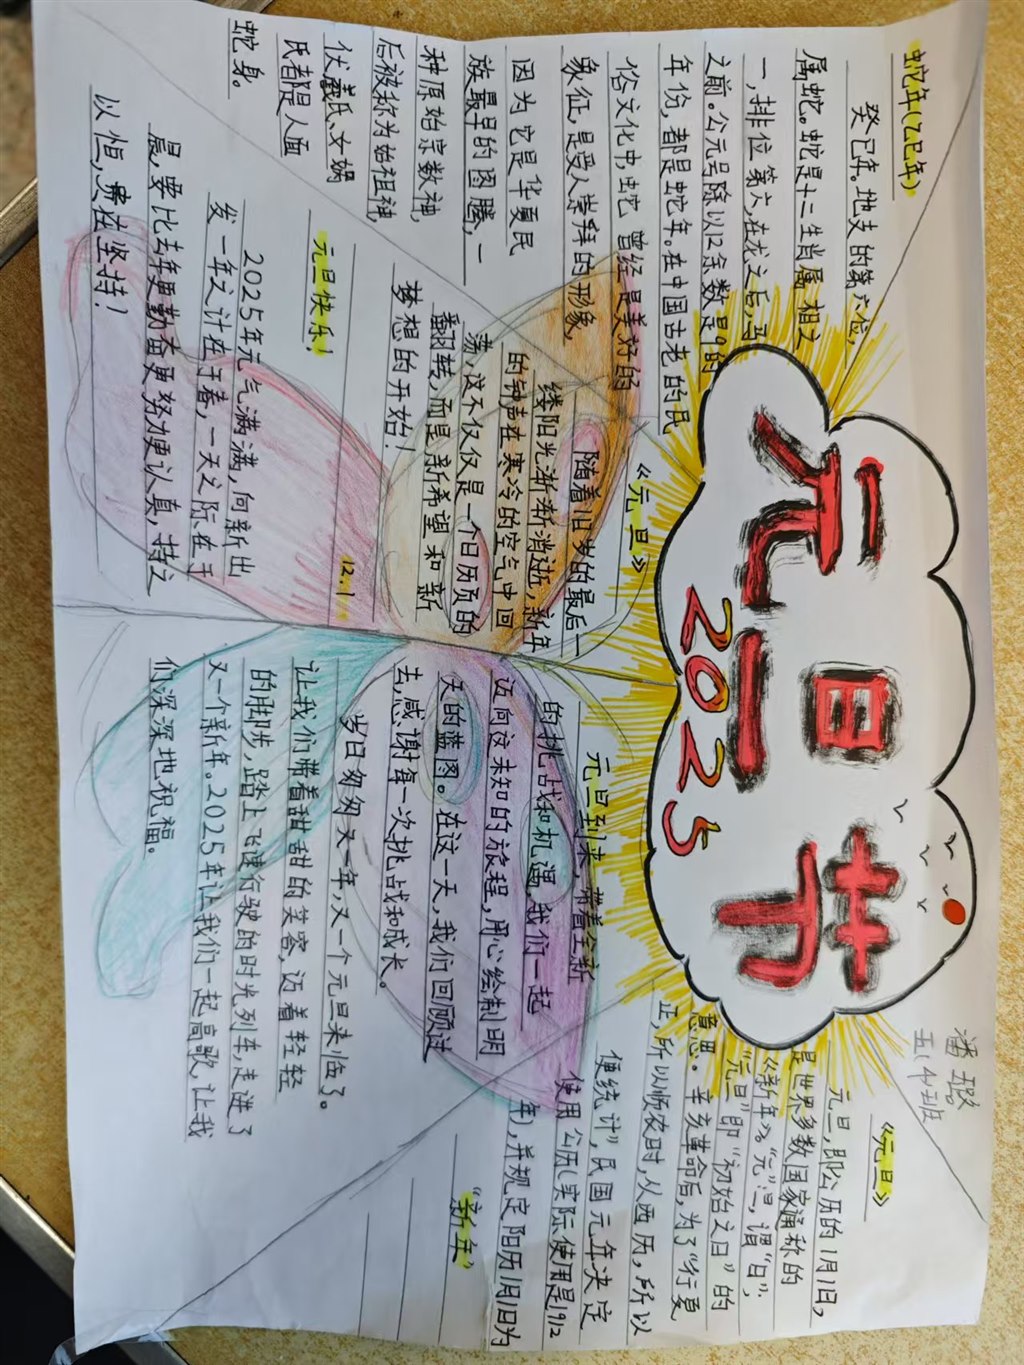 元旦节
2025
潘璐
五(4)班
蛇年(乙巳年)
癸巳年。地支的第六位,
属蛇。蛇是十二生肖属相之
一,排位第六,在龙之后,马
之前。公元号除以12余数是9的
年份,都是蛇年。在中国古老的民
俗文化中,蛇曾经是美好的
象征,是受人崇拜的形象,
因为它是华夏民
族最早的图腾,一
种原始宗教神,
后被称为始祖神,
伏羲氏、女娲
氏都是人面
蛇身。
《元旦》
随着旧岁的最后一
缕阳光渐渐消逝,新年
的钟声在寒冷的空气中回
荡,这不仅仅是一个日历页的
翻转,而是新希望和新
梦想的开始!
元旦快乐!
12.1
2025年元气满满,向新出
发一年之计在于春,一天之际在于
晨,要比去年更勤奋更努力更认真,持之
以恒,贵在坚持!
元旦到来,带着全新
的挑战和机遇,我们一起
迈向这未知的旅程,用心绘制明
天的蓝图。在这一天,我们回顾过
去,感谢每一次挑战和成长。
岁日匆匆又一年,又一个元旦来临了。
让我们带着甜甜的笑容,迈着轻轻
的脚步,踏上飞速行驶的时光列车,走进了
又一个新年。2025年让我们一起高歌,让我
们深深地祝福。
《元旦》
元旦,即公历的1月1日,
是世界多数国家通称的
《新年》。“元”,谓“日”,
“元旦”即“初始之日”的
意思。辛亥革命后,为了“行夏
正,所以顺农时,从西历,所以
便统计”,民国元年决定
使用公历(实际使用是1912
年),并规定阳历1月1日为
“新年”